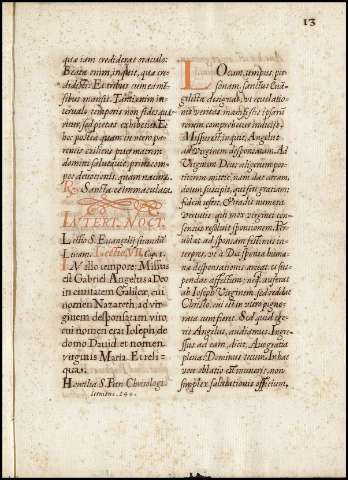 13
qua iam crediderat nuntio:
Beata enim, inquit, quæ cre-
didisti. Et tribus cum ea mē-
sibus mansit. Tanto enim in-
teruallo temporis non fides quę-
ritur, sed pietas exhibetur. Et
hoc postea quam in utero pa-
rentis exiliens puer matrem
domini salutauit, prius com-
pos deuotionis, quam naturæ.
Re. Sancta et immaculata.
IN TERT. NOCT.
Lectio S. Euangelij secundũ
Lucam. Lectio VII. Cap. 1.
IN illo tempore: Missus
est Gabriel Angelus a Deo
in ciuitatem Galileæ, cui
nomen Nazareth, ad vir-
ginem desponsatam viro,
cui nomen erat Ioseph, de
domo Dauid: et nomen
virginis Maria. Et reli-
qua.
Homilia S. Petri Chrisologi
sermone. 140.
LOcum, tempus, per-
sonam, sanctus Euā-
gelista designat, ut reuelatio-
nis veritas, manifestis ipsarũ
rerum comprobetur indicijs.
Missus est, inquit, Angelus
ad Virginem desponsatam. Ad
Virginem Deus aligerum por-
titorem mittit; nam dat arram,
dotem suscipit, qui fert gratiam:
fidem refert.
virtutis, qui mox virginei con-
sensus resoluat sponsionem. Per-
nix ad sponsam festinat in-
terpres, vt a Dei sponsa huma-
næ desponsationis arceat et sus-
pendat affectum; neque auferat
ab Ioseph Virginem, sed reddat
Christo, cui est in utero pigne-
rata cum fieret. Sed quid efe-
rit Angelus, audiamus. Ingres-
sus ad eam, dicit, Aue gratia
plena: Dominus tecum. In hac
voce oblatio est muneris, non
simplex salutationis officium.